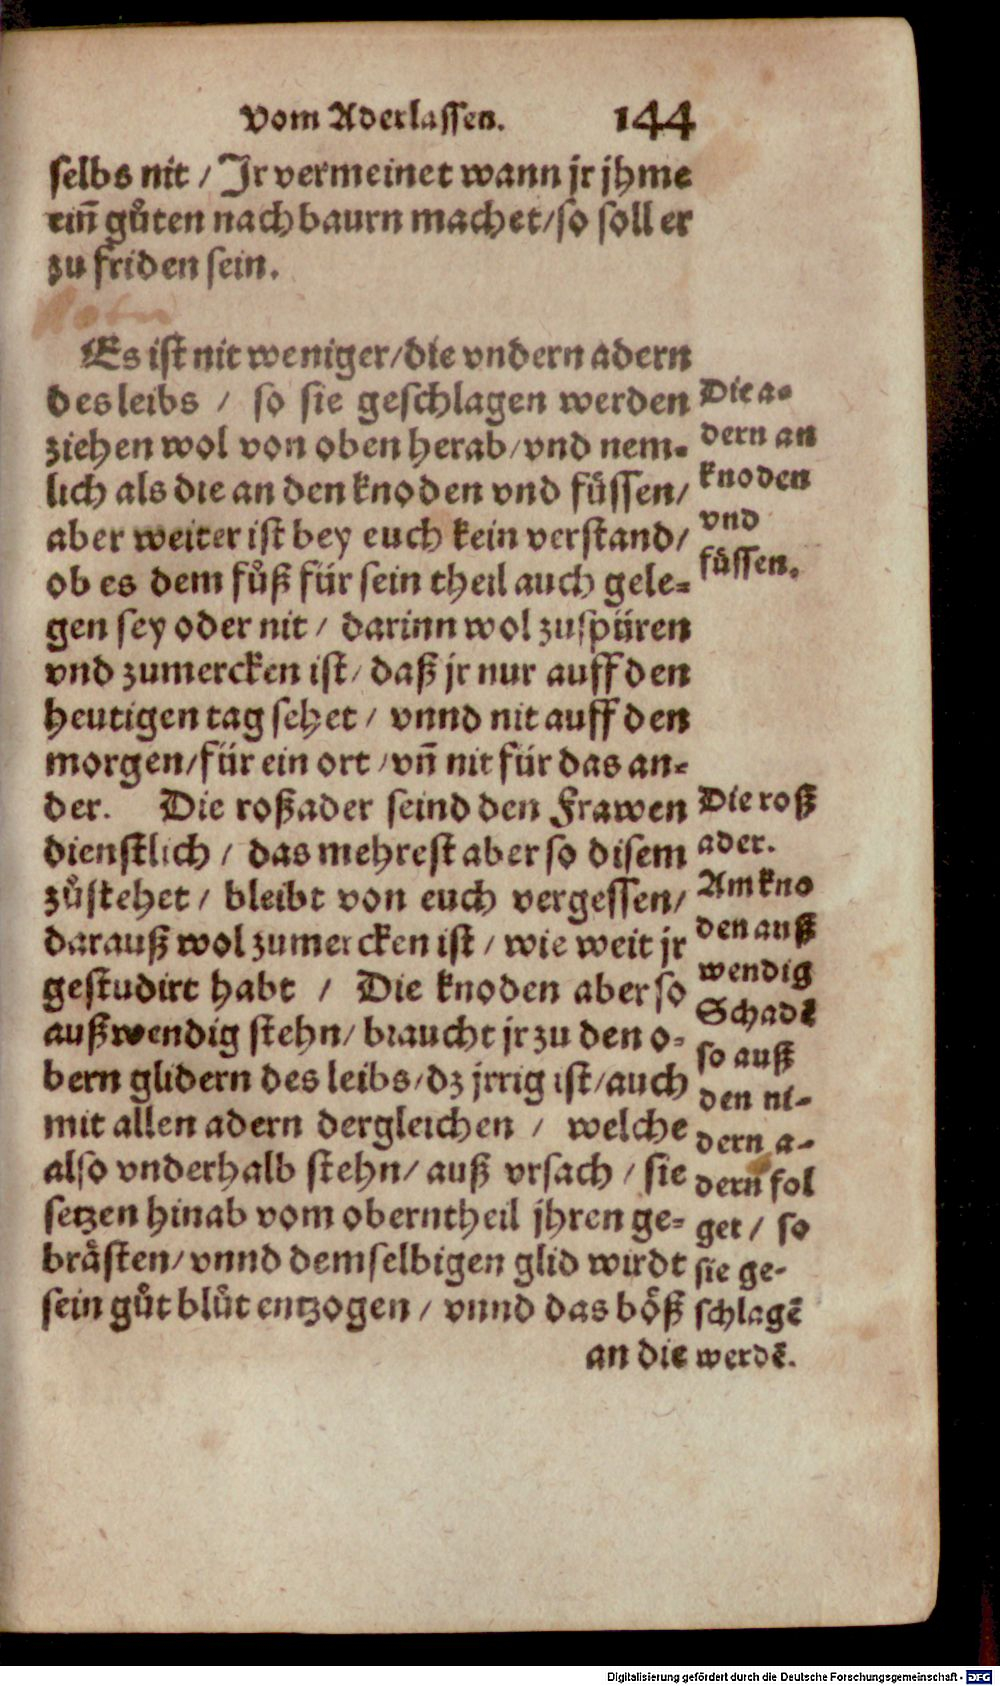 Vom Aderlassen. 144
selbs nit / Jr vermeinet wann jr jhme
ein̄ gůten nachbaurn machet / so soll er
zu friden sein.
Nota
Es ist nit weniger / die vndern adern
des leibs / so sie geschlagen werden
ziehen wol von oben herab / vnd nem-
lich als die an den knoden vnd füssen /
aber weiter ist bey euch kein verstand /
ob es dem fůß für sein theil auch gele-
gen sey oder nit / darinn wol zuspüren
vnd zumercken ist / daß jr nur auff den
heutigen tag sehet / vnnd nit auff den
morgen / für ein ort / vn̄ nit für das an-
der. Die roßader seind den Frawen
dienstlich / das mehrest aber so disem
zůstehet / bleibt von euch vergessen /
darauß wol zumercken ist / wie weit jr
gestudirt habt / Die knoden aber so
außwendig stehn / braucht jr zu den o-
bern glidern des leibs / dz jrrig ist / auch
mit allen adern dergleichen / welche
also vnderhalb stehn / auß vrsach / sie
setzen hinab vom oberntheil jhren ge-
bråsten / vnnd demselbigen glid wirdt
sein gůt blůt entzogen / vnnd das böß
an die
Die a-
dern an
knoden
vnd
füssen.
Die roß
ader.
Am kno
den auß
wendig
Schadē
so auß
den ni-
dern a-
dern fol
get / so
sie ge-
schlagē
werdē.
Digitalisierung gefördert durch die Deutsche Forschungsgemeinschaft - DFG